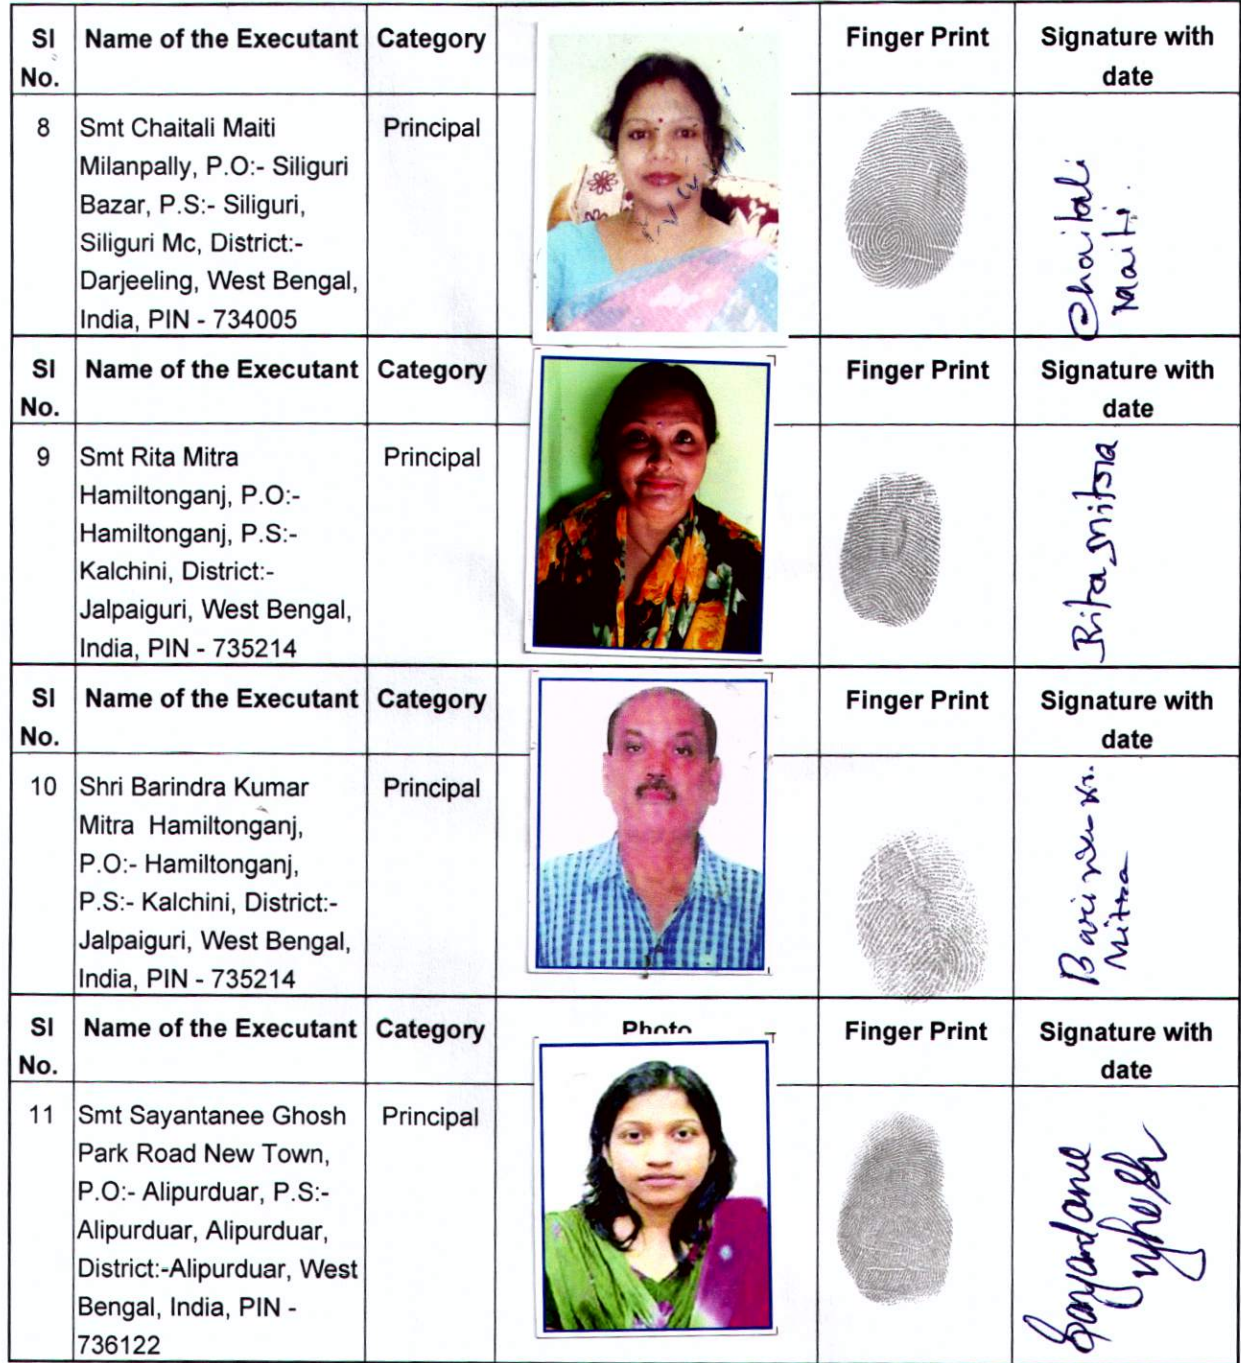 Sl No. Name of the Executant Category Finger Print Signature with date
8 Smt Chaitali Maiti Principal
Milanpally, P.O:- Siliguri
Bazar, P.S:- Siliguri,
Siliguri Mc, District:-
Darjeeling, West Bengal,
India, PIN - 734005
Chaitali
Maiti.
Sl No. Name of the Executant Category Finger Print Signature with date
9 Smt Rita Mitra Principal
Hamiltonganj, P.O:-
Hamiltonganj, P.S:-
Kalchini, District:-
Jalpaiguri, West Bengal,
India, PIN - 735214
Rita Mitra
Sl No. Name of the Executant Category Finger Print Signature with date
10 Shri Barindra Kumar Principal
Mitra Hamiltonganj,
P.O:- Hamiltonganj,
P.S:- Kalchini, District:-
Jalpaiguri, West Bengal,
India, PIN - 735214
Kr.
Mitra
Sl No. Name of the Executant Category Photo Finger Print Signature with date
11 Smt Sayantanee Ghosh Principal
Park Road New Town,
P.O:- Alipurduar, P.S:-
Alipurduar, Alipurduar,
District:-Alipurduar, West
Bengal, India, PIN -
736122
Sayantanee
Ghosh